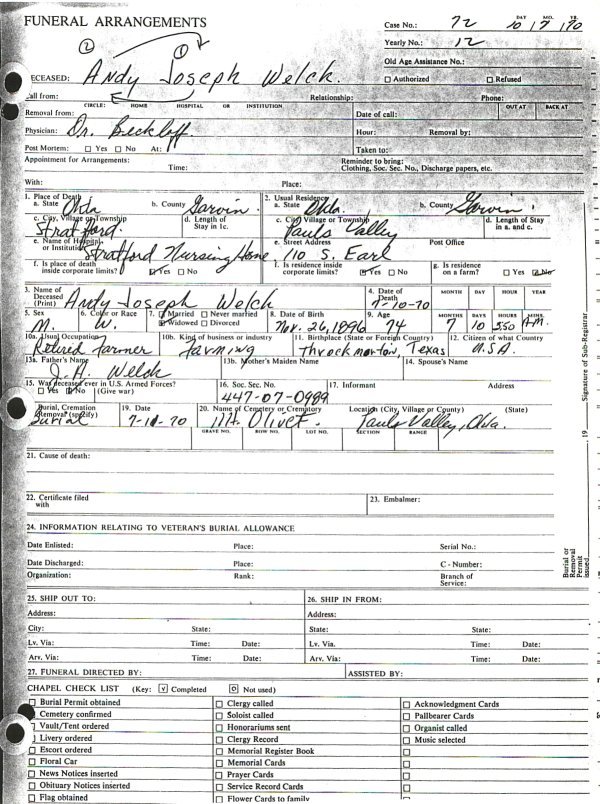 FUNERAL ARRANGEMENTS
Case No.: 72 DAY MO. YR. 10 7 70
Yearly No.: 12
② ①
Old Age Assistance No.:
ECEASED: Andy Joseph Welch.
☐ Authorized ☐ Refused
Call from: Relationship: Phone:
CIRCLE: HOME HOSPITAL OR INSTITUTION OUT AT BACK AT
Removal from: Date of call:
Physician: Dr. Beckloff. Hour: Removal by:
Post Mortem: ☐ Yes ☐ No At: Taken to:
Appointment for Arrangements: Time: Reminder to bring:
Clothing, Soc. Sec. No., Discharge papers, etc.
With: Place:
1. Place of Death 2. Usual Residence
a. State Okla b. County Garvin a. State Okla b. County Garvin
c. City, Village or Township Stratford. d. Length of Stay in 1c. c. City, Village or Township Pauls Valley d. Length of Stay in a. and c.
e. Name of Hospital or Institution Stratford Nursing Home e. Street Address 110 S. Earl Post Office
f. Is place of death inside corporate limits? ☑ Yes ☐ No f. Is residence inside corporate limits? ☑ Yes ☐ No g. Is residence on a farm? ☐ Yes ☑ No
3. Name of Deceased (Print) Andy Joseph Welch 4. Date of Death 7-10-70 MONTH DAY HOUR YEAR
5. Sex M. 6. Color or Race W. 7. ☐ Married ☐ Never married ☑ Widowed ☐ Divorced 8. Date of Birth Nov. 26, 1896 9. Age 74 MONTHS 7 DAYS 10 HOURS 5:50 MINS. A.M.
10a. Usual Occupation Retired Farmer 10b. Kind of business or industry Farming 11. Birthplace (State or Foreign Country) Throckmorton, Texas 12. Citizen of what Country U.S.A.
13a. Father's Name J.H. Welch 13b. Mother's Maiden Name 14. Spouse's Name
15. Was deceased ever in U.S. Armed Forces? ☐ Yes ☑ No (Give war) 16. Soc. Sec. No. 447-07-0989 17. Informant Address
Burial, Cremation Removal (specify) Burial 19. Date 7-11-70 20. Name of Cemetery or Crematory Mt. Olivet. Location (City, Village or County) (State) Pauls Valley, Okla.
GRAVE NO. ROW NO. LOT NO. SECTION RANGE
21. Cause of death:
22. Certificate filed with 23. Embalmer:
24. INFORMATION RELATING TO VETERAN'S BURIAL ALLOWANCE
Date Enlisted: Place: Serial No.:
Date Discharged: Place: C - Number:
Organization: Rank: Branch of Service:
25. SHIP OUT TO: 26. SHIP IN FROM:
Address: Address:
City: State: State: State:
Lv. Via: Time: Date: Lv. Via: Time: Date:
Arv. Via: Time: Date: Arv. Via: Time: Date:
27. FUNERAL DIRECTED BY: ASSISTED BY:
CHAPEL CHECK LIST (Key: ☑ Completed ⊡ Not used)
☐ Burial Permit obtained ☐ Clergy called ☐ Acknowledgment Cards
Cemetery confirmed ☐ Soloist called ☐ Pallbearer Cards
☐ Vault/Tent ordered ☐ Honorariums sent ☐ Organist called
Livery ordered ☐ Clergy Record ☐ Music selected
☐ Escort ordered ☐ Memorial Register Book ☐
☐ Floral Car ☐ Memorial Cards ☐
☐ News Notices inserted ☐ Prayer Cards ☐
☐ Obituary Notices inserted ☐ Service Record Cards ☐
☐ Flag obtained ☐ Flower Cards to family ☐
Signature of Sub-Registrar
19
Burial or Removal Permit issued